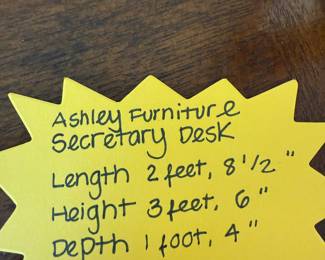 Ashley Furniture
Secretary Desk
Length 2 feet, 8 1/2"
Height 3 feet, 6"
Depth 1 foot, 4"